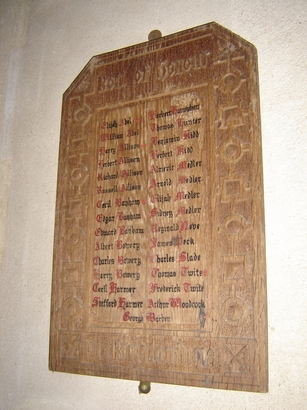 Roll of Honour
Elijah Abel
William Abel
Harry Allison
Herbert Allison
Richard Allison
Russell Allison
Cecil Banham
Edgar Banham
Edward Banham
Albert Bowery
Charles Bowery
Harry Bowery
Cecil Harmer
Stafford Harmer
Herbert
Thomas Hunter
Benjamin Kidd
Herbert Kidd
Medler
Arnold Medler
Elijah Medler
Sidney Medler
Reginald
James
Charles Slade
Thomas Twite
Frederick Twite
Arthur Woodcock
George Barber